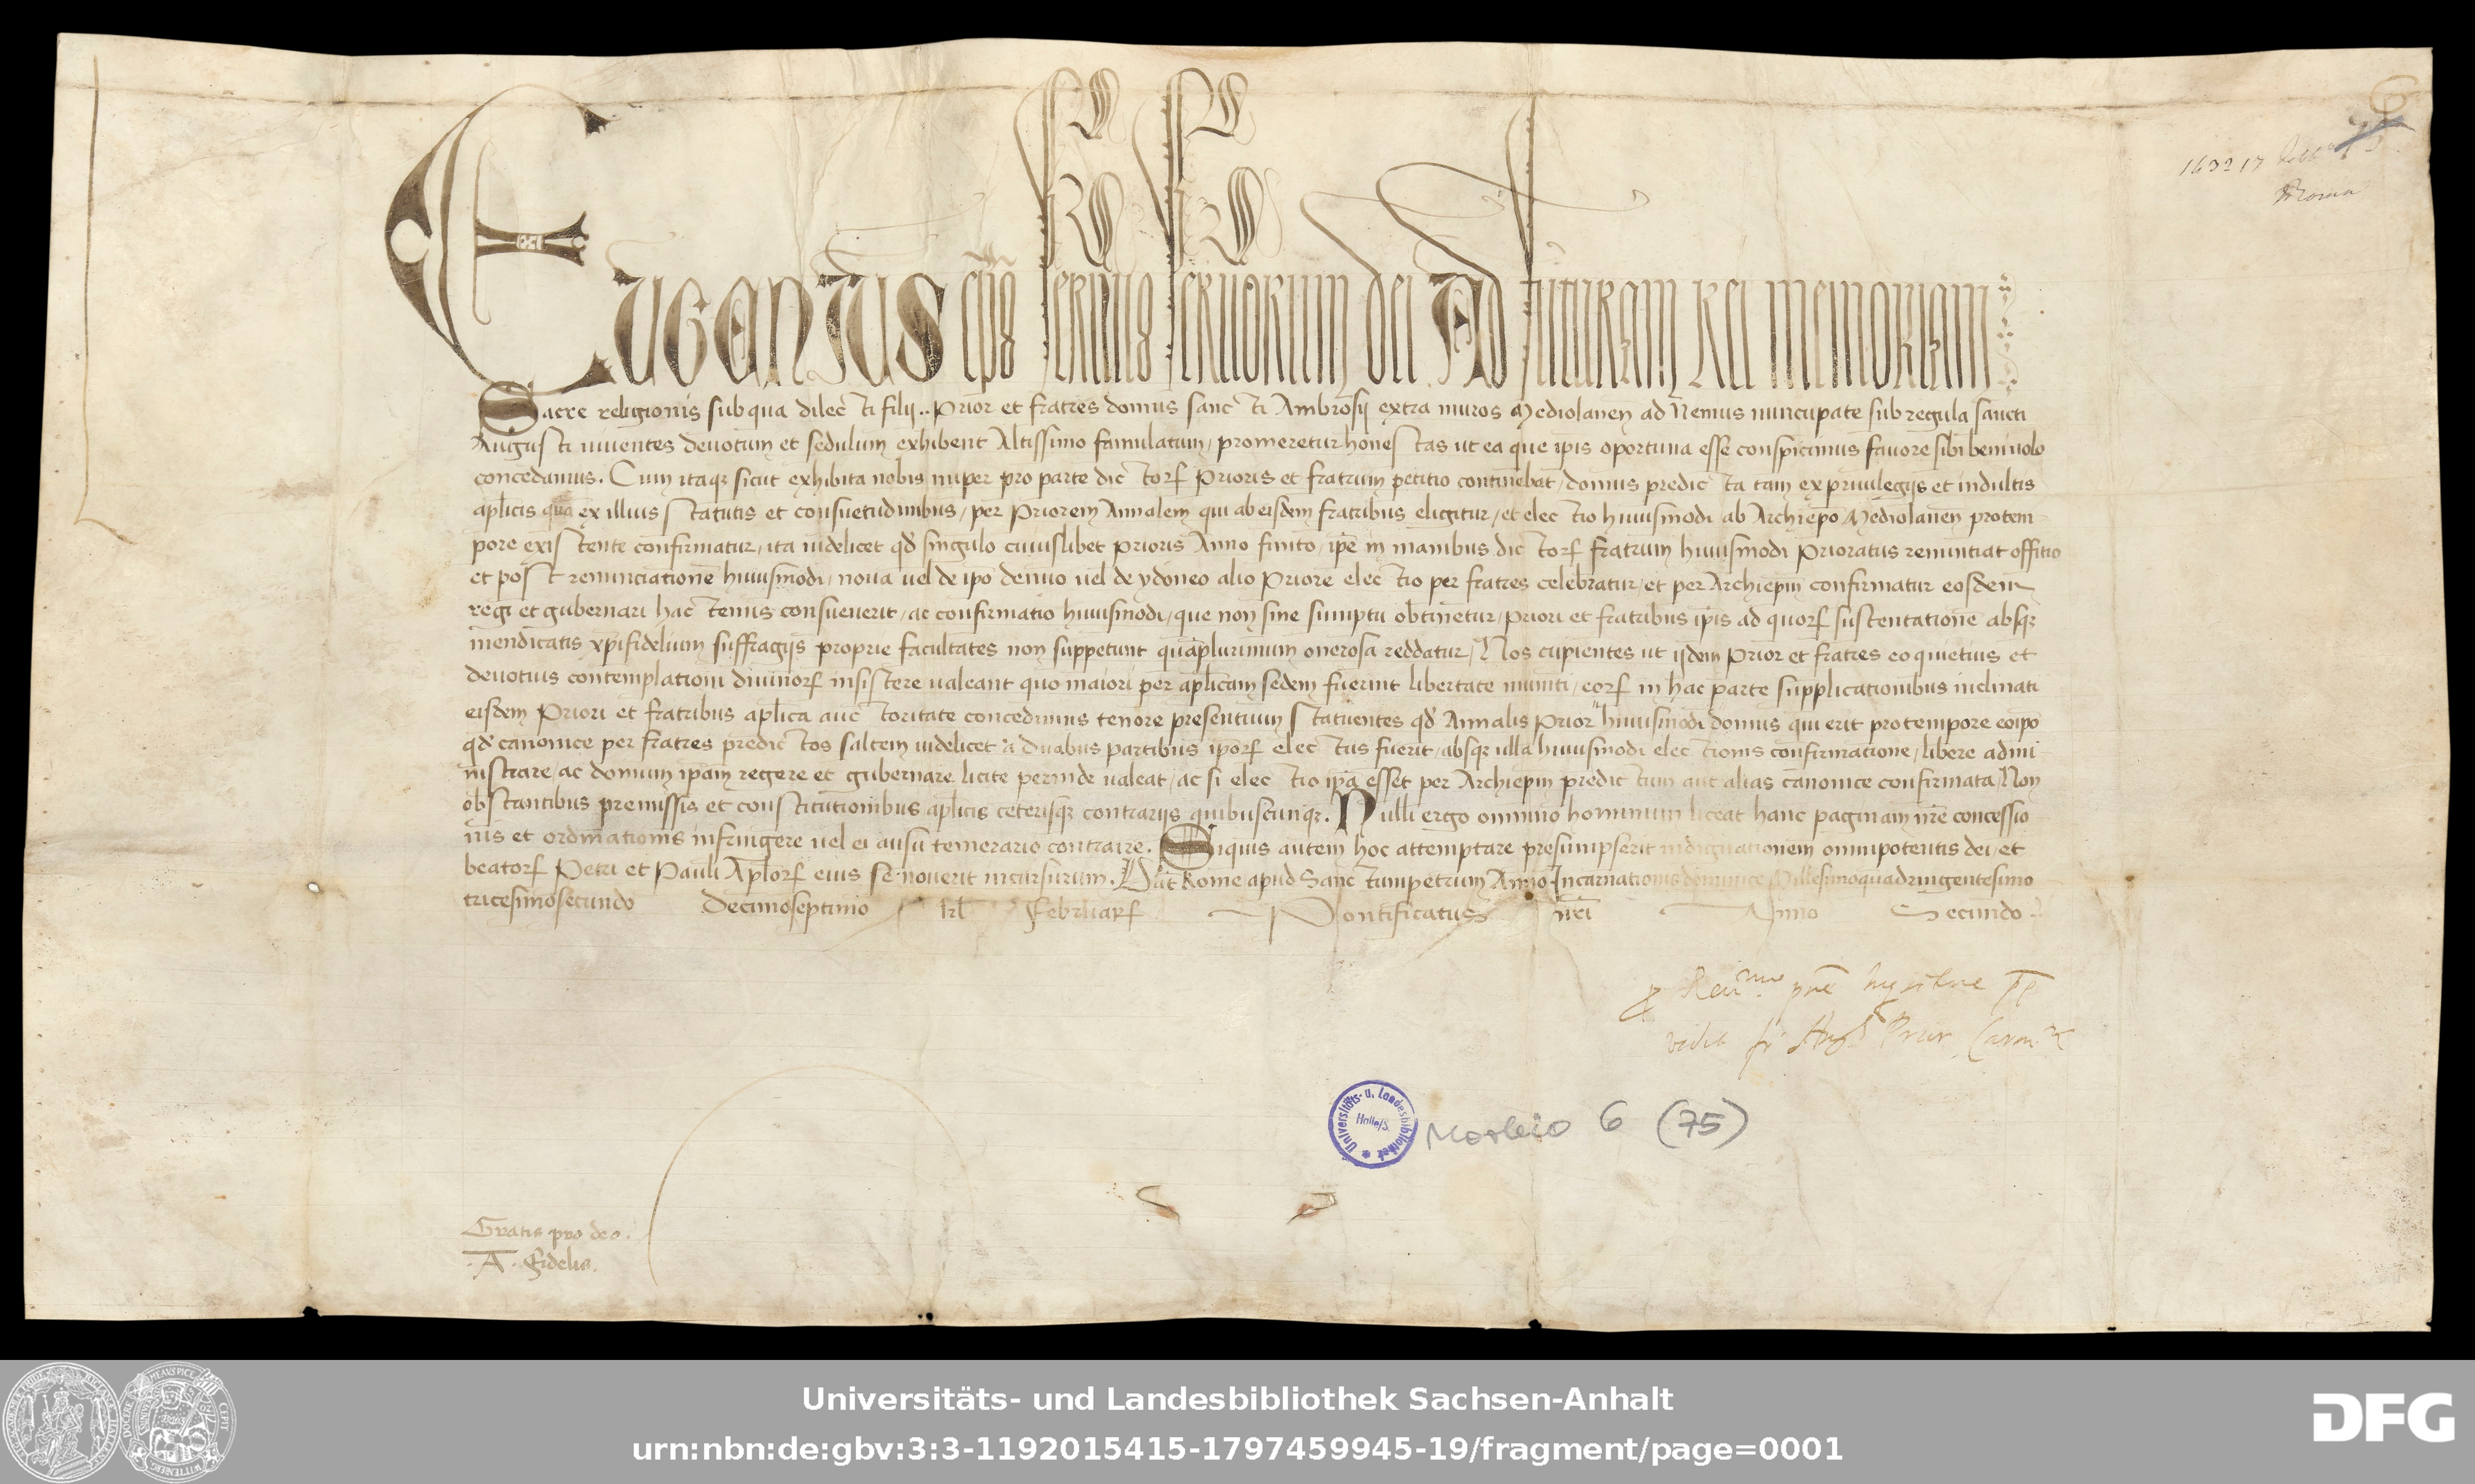 Eugenius ep̄s seruus seruorum dei Ad futuram Rei memoriam
Sacre religionis sub qua dilecti filij .. Prior et fratres domus sancti Ambrosij extra muros Mediolanen̄ ad Nemus nuncupate sub regula sancti
Augusti uiuentes deuotum et sedulum exhibent Altissimo famulatum, promeretur honestas ut ea que ip̄is oportuna esse conspicimus fauore sibi beniuolo
concedamus. Cum itaqꝫ sicut exhibita nobis nuper pro parte dictorꝝ Prioris et fratrum petitio continebat, domus predicta tam ex priuilegijs et indultis
ap̄licis quā ex illius statutis et consuetudinibus, per Priorem Annalem qui ab eisdem fratribus eligitur, et electio huiusmodi ab Archiep̄o Mediolanen̄ pro tem-
pore existente confirmatur, ita uidelicet qd̓ singulo cuiuslibet Prioris Anno finito, ip̄e in manibus dictorꝝ fratrum huiusmodi Prioratus renuntiat offitio
et post renunciationē huiusmodi, noua uel de ip̄o denuo uel de ydoneo alio Priore electio per fratres celebratur, et per Archiep̄m confirmatur eosdem
regi et gubernari hactenus consueuerit, ac confirmatio huiusmodi, que non sine sumptu obtinetur, Priori et fratribus ip̄is ad quorꝝ sustentationē absqꝫ
mendicatis xp̄ifidelium suffragijs proprie facultates non suppetunt quāplurimum onerosa reddatur, Nos cupientes ut ijdem Prior et fratres eo quietius et
deuotius contemplationi diuinorꝝ insistere ualeant quo maiori per ap̄licam sedem fuerint libertate muniti, eorꝝ in hac parte supplicationibus inclinati
eisdem Priori et fratribus ap̄lica auctoritate concedimus tenore presentium statuentes qd̓ Annalis Prior huiusmodi domus qui erit pro tempore eoip̄o
qd̓ canonice per fratres predictos saltem uidelicet a duabus partibus ip̄orꝝ electus fuerit, absqꝫ ulla huiusmodi electionis confirmatione, libere admi-
nistrare, ac domum ip̄am regere et gubernare licite perinde ualeat, ac si electio ip̄a esset per Archiep̄m predictum aut alias canonice confirmata, Non
obstantibus premissis et constitutionibus ap̄licis ceterisqꝫ contrarijs quibuscunqꝫ. Nulli ergo omnino hominum liceat hanc paginam nr̄e concessio
nis et ordinationis infringere uel ei ausu temerario contraire. Siquis autem hoc attemptare presumpserit indignationem omnipotentis dei, et
beatorꝝ Petri et Pauli Ap̄lorꝝ eius se nouerit incursurum. Dat̄ Rome apud Sanctumpetrum Anno Incarnationis dominice Millesimoquadringentesimo
tricesimosecundo Decimoseptimo kl̄ Februarꝝ Pontificatus nr̄i Anno Secundo
vidit
Gratis pro deo.
.A. Fidelis.
Universitäts- u. Landesbibliothek
Halle/S.
Morbio 6 (75)
Universitäts- und Landesbibliothek Sachsen-Anhalt
urn:nbn:de:gbv:3:3-1192015415-1797459945-19/fragment/page=0001
DFG